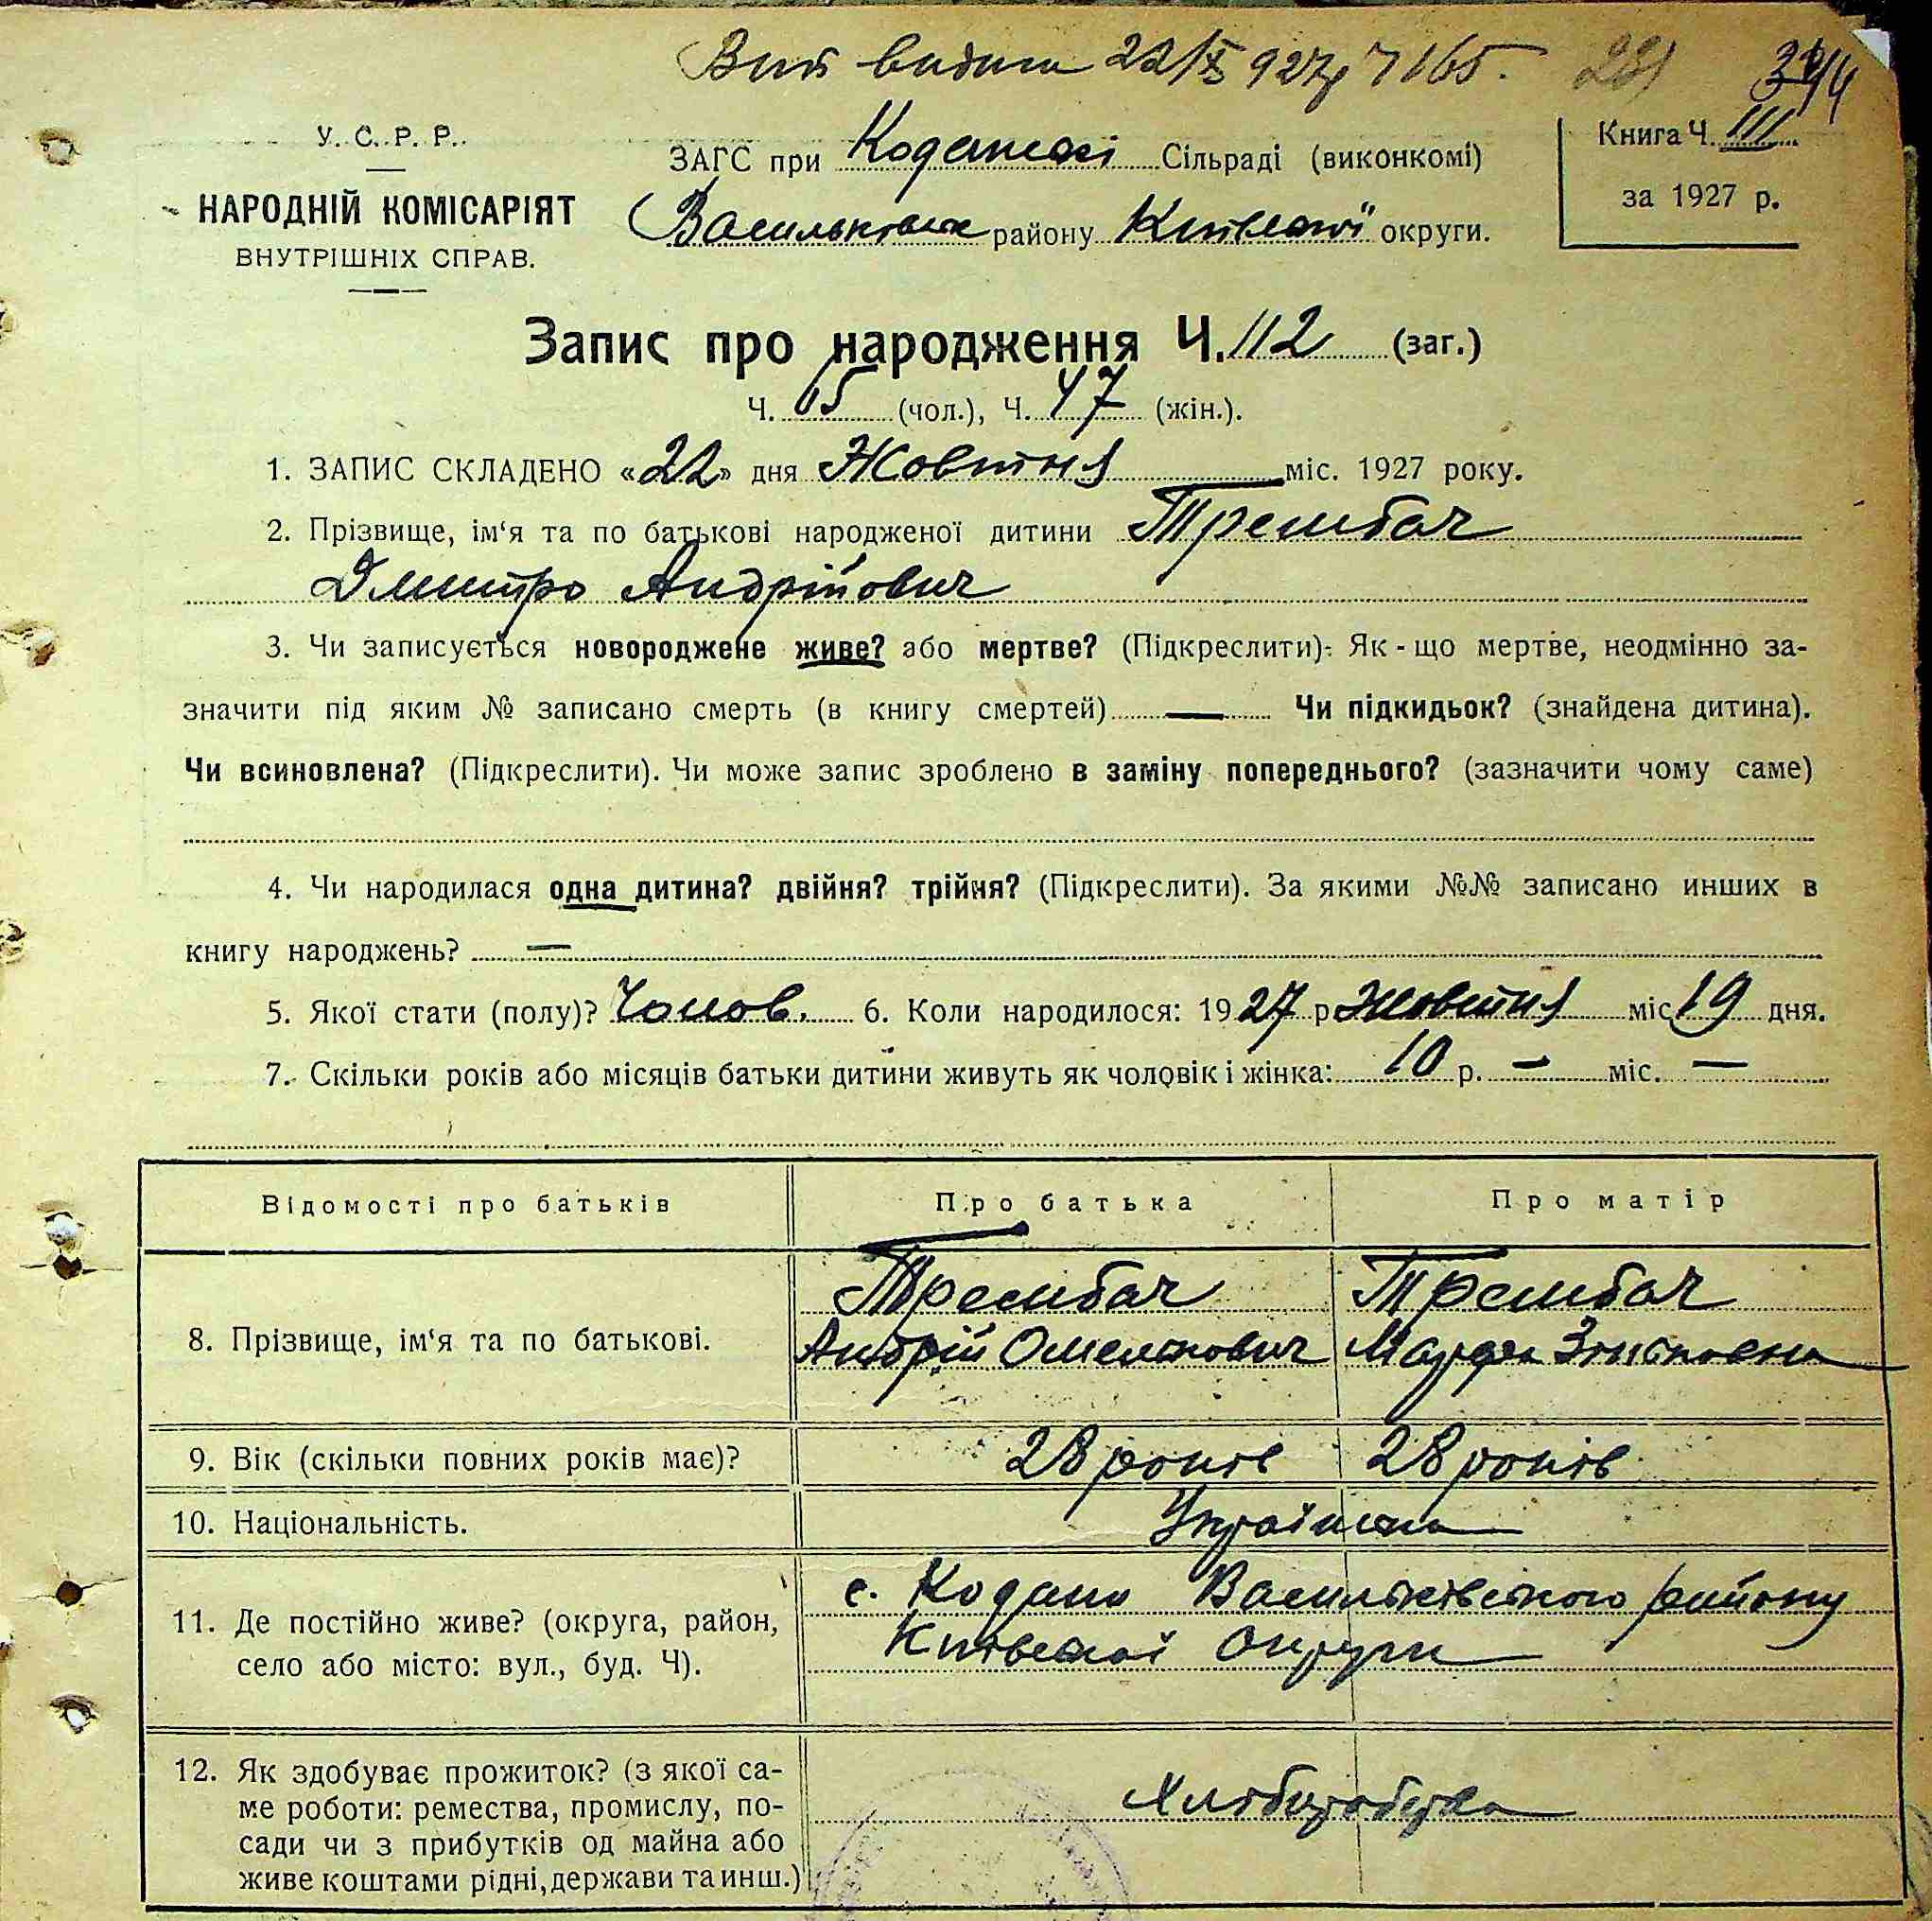 22/X 927р 7165. 281
У. С. Р. Р.
НАРОДНІЙ КОМІСАРІЯТ
ВНУТРІШНІХ СПРАВ.
ЗАГС при Кодацької Сільраді (виконкомі)
Васильківськ району Київської округи.
Книга Ч. III
за 1927 р.
Запис про народження Ч. 112 (заг.)
Ч. 65 (чол.), Ч. 47 (жін.).
1. ЗАПИС СКЛАДЕНО «22» дня Жовтня міс. 1927 року.
2. Прізвище, ім‘я та по батькові народженої дитини Трембач
Дмитро Андрійович
3. Чи записується новороджене живе? або мертве? (Підкреслити). Як - що мертве, неодмінно за-
значити під яким № записано смерть (в книгу смертей) — Чи підкидьок? (знайдена дитина).
Чи всиновлена? (Підкреслити). Чи може запис зроблено в заміну попереднього? (зазначити чому саме)
4. Чи народилася одна дитина? двійня? трійня? (Підкреслити). За якими №№ записано инших в
книгу народжень? —
5. Якої стати (полу)? Чолов. 6. Коли народилося: 1927 р Жовтня міс 19 дня.
7. Скільки років або місяців батьки дитини живуть як чоловік і жінка: 10 р. — міс. —
Відомості про батьків Про батька Про матір
8. Прізвище, ім‘я та по батькові.
Трембач
Андрій Омелянович
Трембач
Марфа
9. Вік (скільки повних років має)? 28 років 28 років
10. Національність. Українська
11. Де постійно живе? (округа, район,
село або місто: вул., буд. Ч).
с. Кодаки Васильківського району
Київської Округи
12. Як здобуває прожиток? (з якої са-
ме роботи: ремества, промислу, по-
сади чи з прибутків од майна або
живе коштами рідні, держави та инш.)
Хліборобства